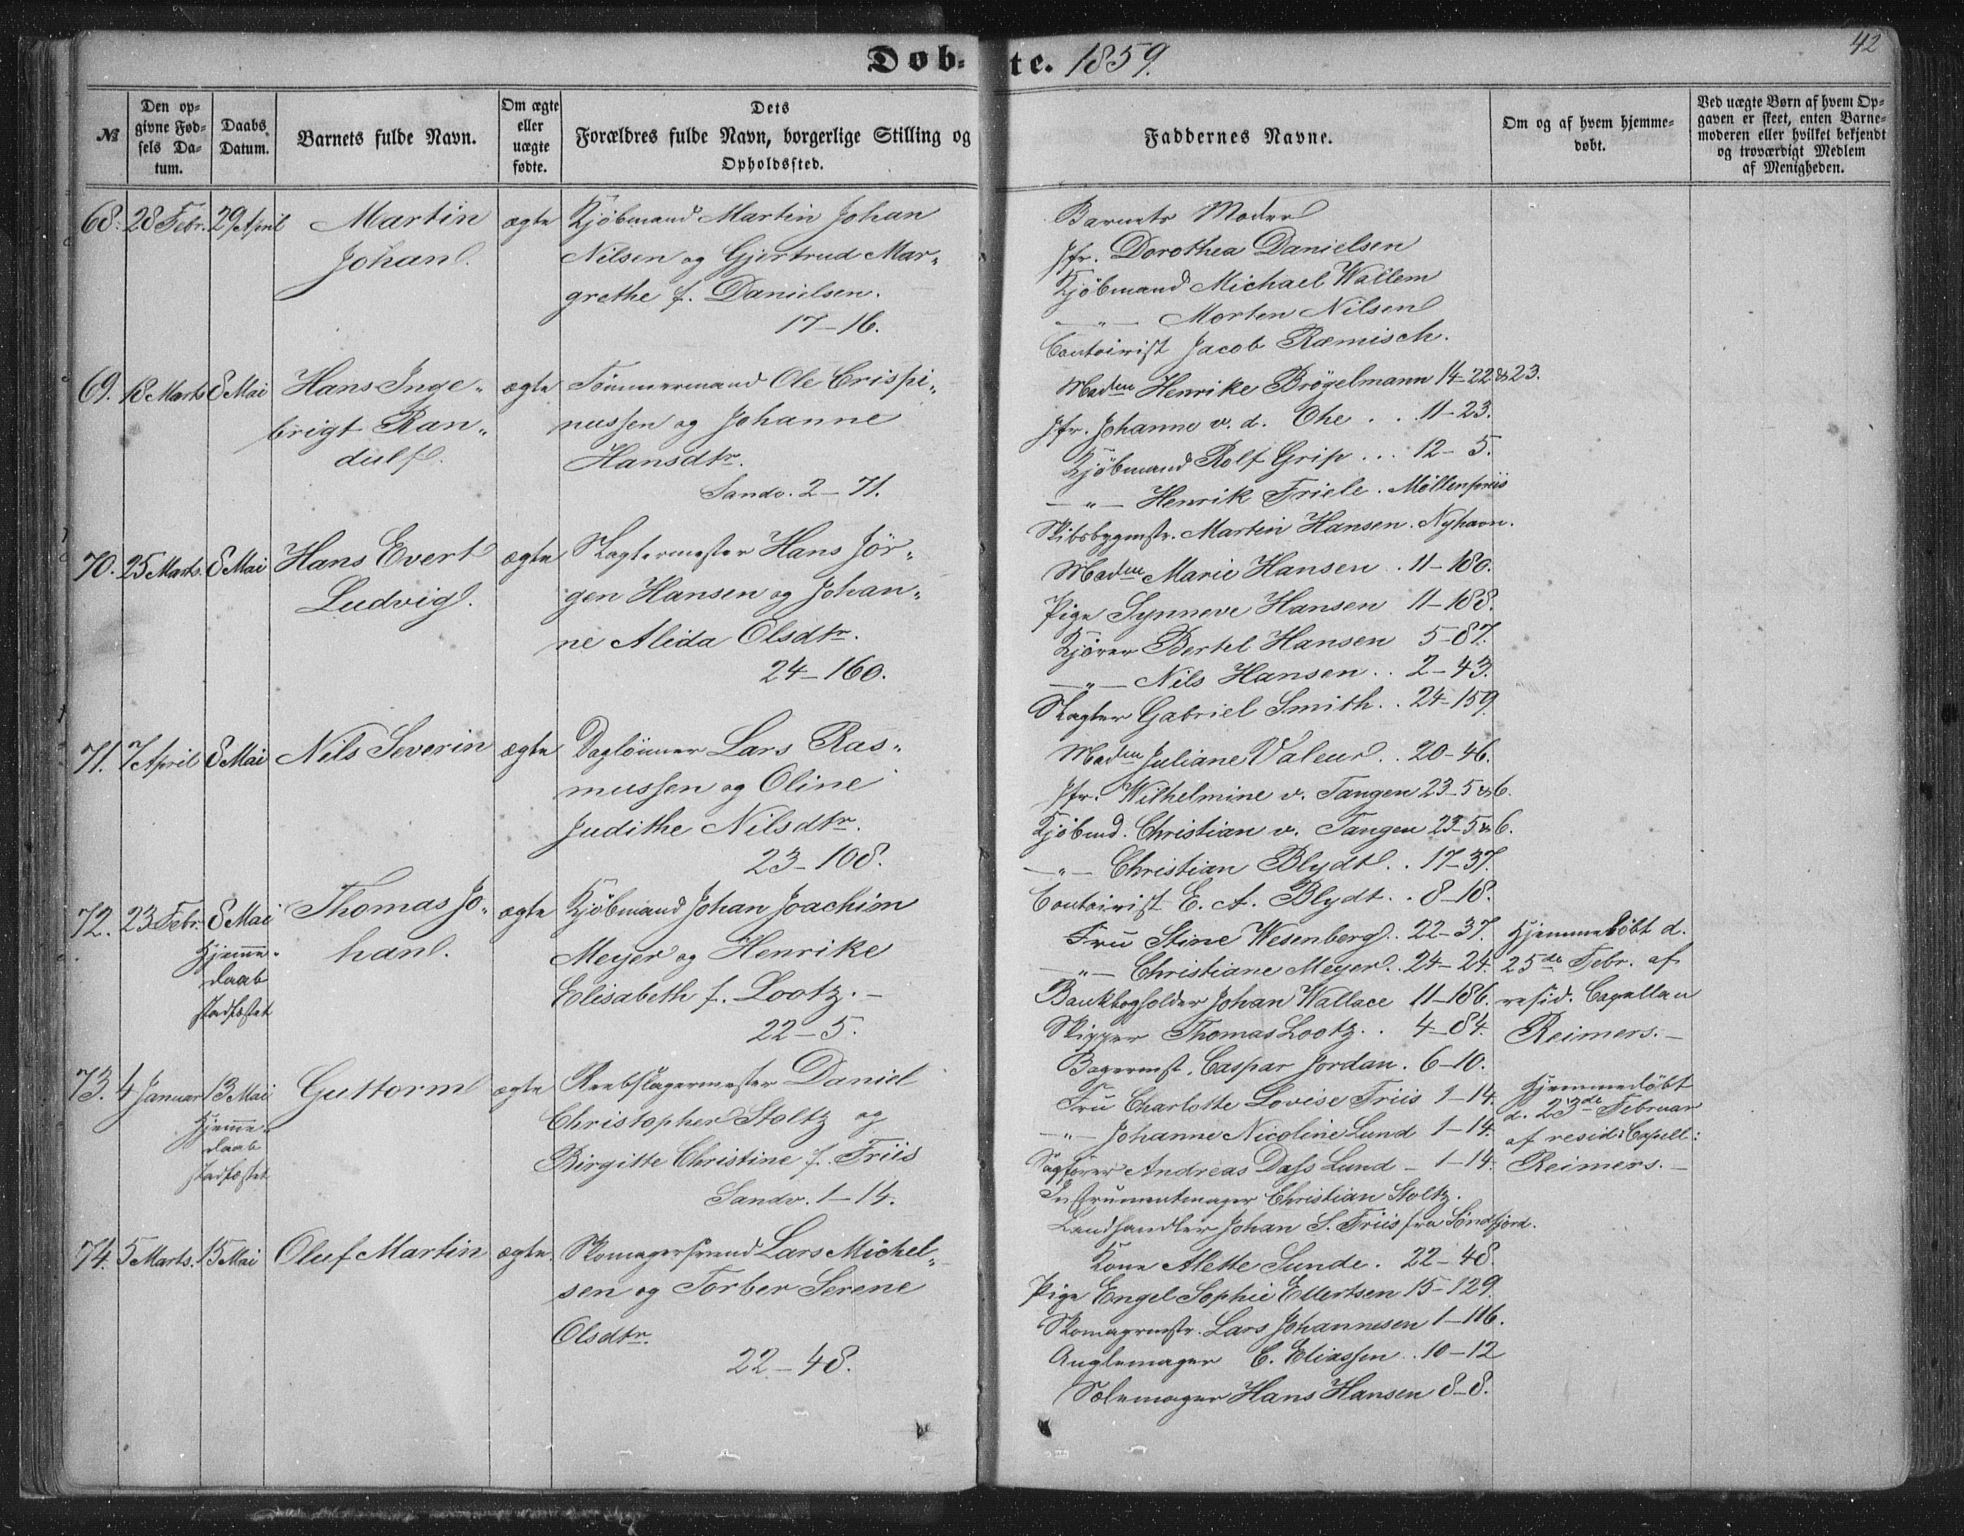 Døb-te. 1859.
42
№
Den op-
givne Fød-
sels Da-
tum.
Daabs
Datum.
Barnets fulde Navn.
Om ægte
eller
uægte
fødte.
Dets
Forældres fulde Navn, borgerlige Stilling og
Opholdssted.
Faddernes Navne.
Om og af hvem hjemme-
døbt.
Ved uægte Børn af hvem Op-
gaven er skeet, enten Barne-
moderen eller hvilket bekjendt
og troværdigt Medlem
af Menigheden.
68. 28 Febr. 29 April Martin ægte Kjøbmand Martin Johan
Johan. Nilsen og Gjertrud Mar-
grethe f. Danielsen.
17-16.
Barnets Moder
Jfr. Dorothea Danielsen
Kjøbmand Michael Wallem
—"— Morten Nilsen
Contoirist Jacob Ræmisch.
69. 18 Marts 8 Mai Hans Inge- ægte Tømmermand Ole Crispi-
brigt Ran- nussen og Johanne
dulf. Hansdtr.
Sandv. 2-71.
Madm Henrike Brøgelmann 14-22 & 23.
Jfr. Johanne v. d. Ohe . . 11-23.
Kjøbmand Rolf Grip . . . 12-5.
—"— Henrik Friele. Møllenpriis
Skibsbygmstr. Martin Hansen. Nyhavn.
70. 25 Marts. 8 Mai Hans Evert ægte Slagtermester Hans Jør-
Ludvig. gen Hansen og Johan-
ne Alida Olsdtr.
24-160.
Madm Marie Hansen . 11-180.
Pige Synneve Hansen 11-188.
Kjører Bertel Hansen 5-87.
—"— Nils Hansen . . 2-43.
Slagter Gabriel Smith . . 24-159.
71. 7 April 8 Mai Nils Severin ægte Daglønner Lars Ras-
mussen og Oline
Judithe Nilsdtr.
23-108.
Madm Juliane Valeur . . 20-46.
Jfr. Wilhelmine v. Tangen 23-5 & 6.
Kjøbmd. Christian v. Tangen 23-5 & 6.
—"— Christian Blydt . . 17-37.
Contoirist E. A. Blydt . . 8-18.
72. 23 Febr. 8 Mai Thomas Jo- ægte Kjøbmand Johan Joachim
Hjemme- han. Meyer og Henrike
daab Elisabeth f. Lootz. —
stadfæstet 22-5.
Fru Stine Wesenberg . . 22-37. Hjemmedøbt d.
—"— Christiane Meyer . . 24-24. 25de Febr. af
Bankbogholder Johan Wallace 11-186. resid. Capellan
Skipper Thomas Lootz . . 4-84. Reimers. —
Bagermst. Caspar Jordan . 6-10.
73. 4 Januar 13 Mai Guttorm ægte Reebslagermester Daniel
Hjemme- Christopher Stoltz og
daab Birgitte Christine f. Friis
stadfæstet Sandv. 1-14.
Fru Charlotte Lovise Friis 1-14. Hjemmedøbt
—"— Johanne Nicoline Lund 1-14. d. 23de Februar
af resid: Capell:
Sagfører Andreas Dass Lund — 1-14. Reimers. —
Instrumentmager Christian Stoltz.
Landhandler Johan S. Friis fra Søndfjord.
74. 5 Marts. 15 Mai Oluf Martin ægte. Skomagersvend Lars Michel-
sen og Torber Serene
Olsdtr.
22-48.
Kone Alette Sunde . 22-48.
Pige Engel Sophie Ellertsen 15-129.
Skomagermstr. Lars Johannesen 1-116.
Anglemager C. Eliassen . . 10-12
Sælemager Hans Hansen 8-8.